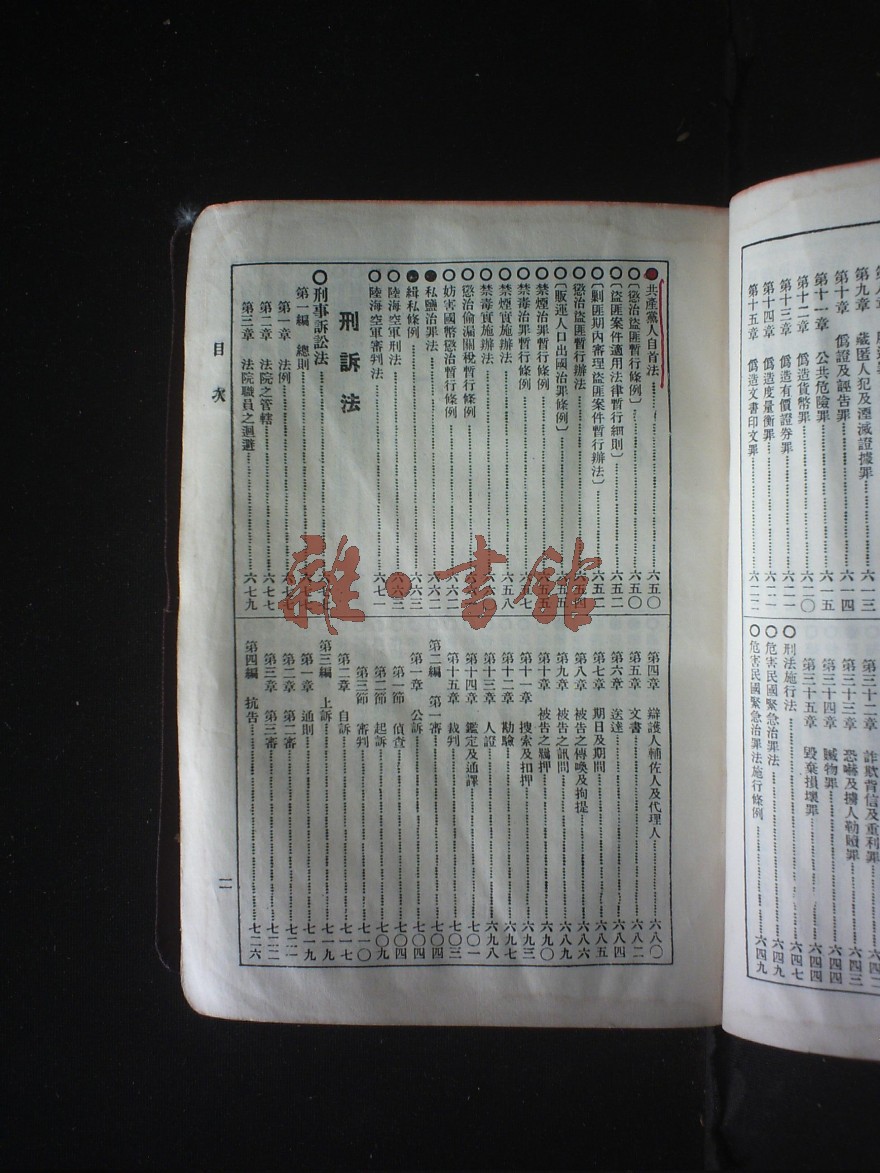 第九章 藏匿人犯及湮滅證據罪
第十章 僞證及誣告罪……六一四
第十一章 公共危險罪……六一五
第十二章 僞造貨幣罪……六二〇
第十三章 僞造有價證券罪……六二一
第十四章 僞造度量衡罪……六二一
第十五章 僞造文書印文罪……六二二
第三十二章 詐欺背信及重利罪
第三十三章 恐嚇及擄人勒贖罪……六四三
第三十四章 贓物罪……六四四
第三十五章 毀棄損壞罪……六四四
○刑法施行法……六四七
○危害民國緊急治罪法……六四九
○危害民國緊急治罪法施行條例……六四九
●共產黨人自首法……六五〇
○〔懲治盜匪暫行條例〕……六五〇
○〔盜匪案件適用法律暫行細則〕……六五二
○〔剿匪期內審理盜匪案件暫行辦法〕……六五二
○懲治盜匪暫行辦法……六五四
○〔販運人口出國治罪條例〕……六五五
○禁煙治罪暫行條例……六五五
○禁毒治罪暫行條例……六五七
○禁煙實施辦法……六五八
○禁毒實施辦法……六六〇
○懲治偷漏關稅暫行條例……六六一
○妨害國幣懲治暫行條例……六六二
●私鹽治罪法……六六二
●緝私條例……六六三
○陸海空軍刑法……六六三
○陸海空軍審判法……六七一
刑訴法
○刑事訴訟法……六七七
第一編 總則……六七七
第一章 法例……六七七
第二章 法院之管轄……六七七
第三章 法院職員之迴避……六七九
第四章 辯護人輔佐人及代理人……六八〇
第五章 文書……六八二
第六章 送達……六八四
第七章 期日及期間……六八五
第八章 被告之傳喚及拘提……六八六
第九章 被告之訊問……六八九
第十章 被告之羈押……六九〇
第十一章 搜索及扣押……六九三
第十二章 勘驗……六九七
第十三章 人證……六九八
第十四章 鑑定及通譯……七〇一
第十五章 裁判……七〇三
第二編 第一審……七〇四
第一章 公訴……七〇四
第一節 偵查……七〇四
第二節 起訴……七〇九
第三節 審判……七一〇
第二章 自訴……七一七
第三編 上訴……七一九
第一章 通則……七一九
第二章 第二審……七二一
第三章 第三審……七二二
第四編 抗告……七二六
目次
二
雜·書館